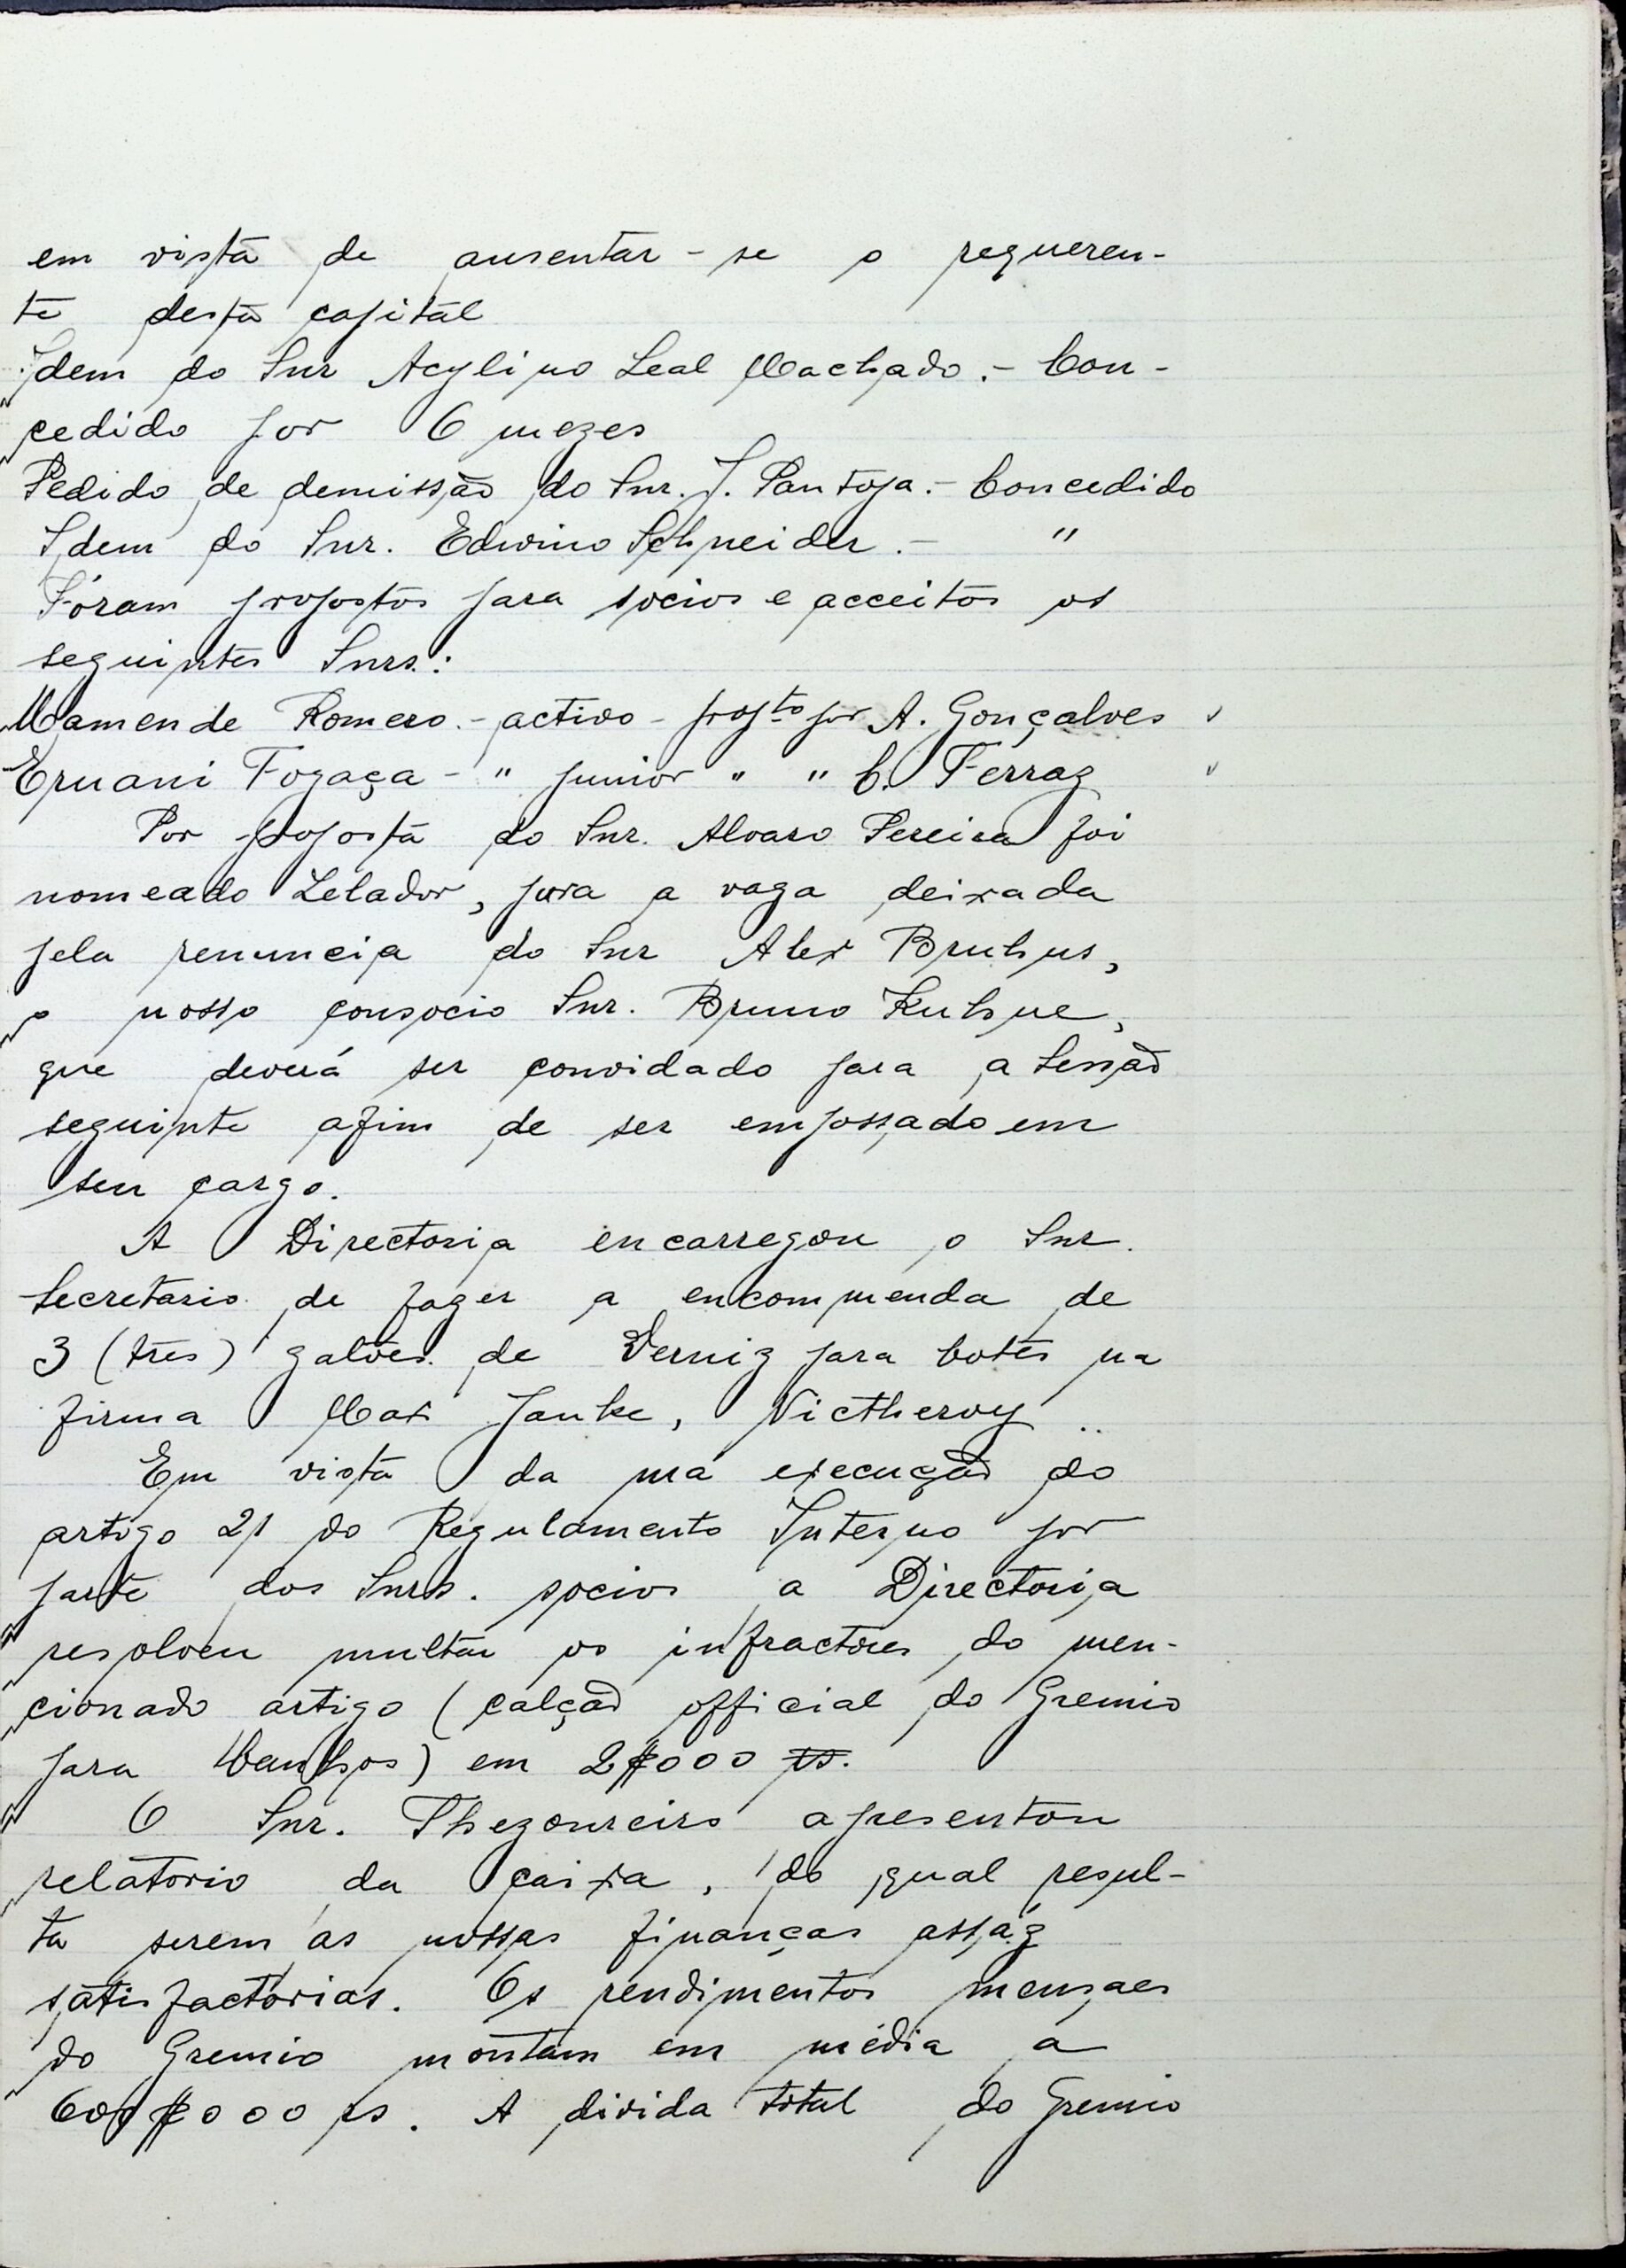 em vista de ausentar-se o requeren-
te desta capital
Idem do Snr Acylino Leal Machado.- Con-
cedido por 6 mezes
Pedido de demissão do Snr. J. Pantoja.- Concedido
Idem do Snr. Edwino Schneider.- "
Fóram propostos para socios e acceitos os
seguintes Snrs.:
Mamende Romero.- activo - propto por A. Gonçalves
Ernani Fogaça - " junior " " C. Ferraz
Por proposta do Snr. Alvaro Pereira foi
nomeado Zelador, para a vaga deixada
pela renuncia do Snr Alex Bruhns,
o nosso consocio Snr. Bruno Kuhne,
que deverá ser convidado para a Sessão
seguinte afim de ser empossado em
seu cargo.
A Directoria encarregou o Snr.
Secretario de fazer a encommenda de
3 (três) galões de Verniz para botes na
firma Max Janke, Nictheroy..
Em vista da má execução do
artigo 21 do Regulamento Interno por
parte dos Snrs. socios a Directoria
resolveu multar os infractores do men-
cionado artigo (calção official do Gremio
para banhos) em 2$000 rs.
O Snr. Thezoureiro apresentou
relatorio da caixa, do qual resul-
ta serem as nossas finanças assáz
satisfactorias. Os rendimentos mensaes
do Gremio montam em média a
600$000 rs. A divida total do Gremio